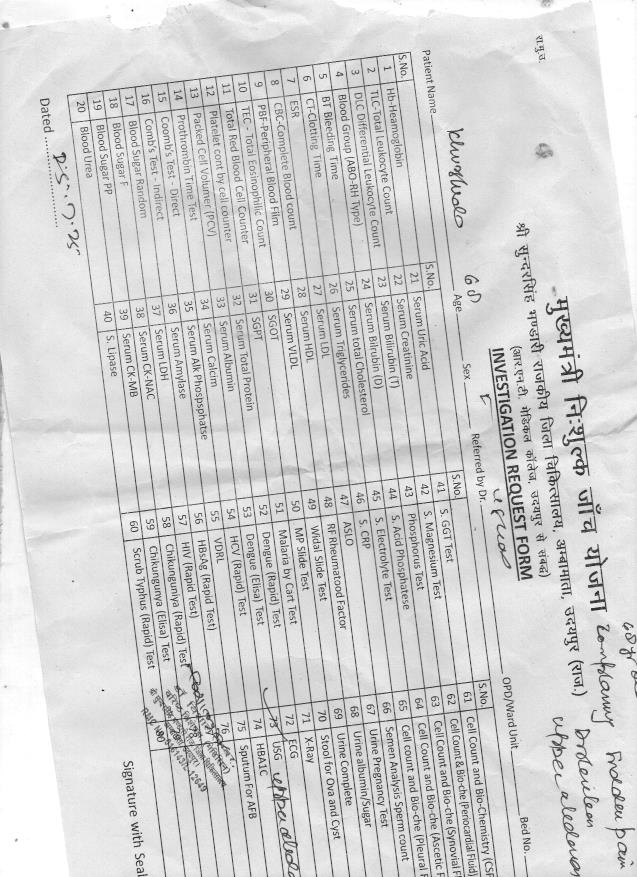 रा.मु.उ.
मुख्यमंत्री निःशुल्क जाँच योजना
श्री सुन्दरसिंह भण्डारी राजकीय जिला चिकित्सालय, अम्बामाता, उदयपुर (राज.)
(आर.एन.टी. मेडिकल कॉलेज, उदयपुर से संबद्ध)
INVESTIGATION REQUEST FORM
Patient Name Age 60 Sex F Referred by Dr. OPD/Ward Unit Bed No.
S.No. S.No. S.No. S.No.
1 Hb-Heamoglobin 21 Serum Uric Acid 41 S. GGT Test 61 Cell Count and Bio-Chemistry (CSF
2 TLC-Total Leukocyte Count 22 Serum Creatinine 42 S. Magnesium Test 62 Cell Count & Bio-che (Periocardial Fluid)
3 DLC Differential Leukocyte Count 23 Serum Bilirubin (T) 43 Phosphorus Test 63 Cell Count and Bio-che (Synovial F
4 Blood Group (ABO-RH Type) 24 Serum Bilrubin (D) 44 S. Acid Phosphatese 64 Cell Count and Bio-che (Ascetic F
5 BT Bleeding Time 25 Serum total Cholesterol 45 S. Electrolyte Test 65 Cell count and Bio-che (Pleural F
6 CT-Clotting Time 26 Serum Triglycerides 46 S. CRP 66 Semen Analysis Sperm count
7 ESR 27 Serum LDL 47 ASLO 67 Urine Pregnancy Test
8 CBC-Complete Blood count 28 Serum HDL 48 RF Rheumatood Factor 68 Urine albumin/Sugar
9 PBF-Peripheral Blood Film 29 Serum VLDL 49 Widal Slide Test 69 Urine Complete
10 TEC - Total Eosinophilic Count 30 SGOT 50 MP Slide Test 70 Stool for Ova and Cyst
11 Total Red Blood Cell Counter 31 SGPT 51 Malaria by Cart Test 71 X-Ray
12 Platelet cont by cell counter 32 Serum Total Protein 52 Dengue (Rapid) Test 72 ECG
13 Packed Cell Volumer (PCV) 33 Serum Albumin 53 Dengue (Elisa) Test 73 USG
14 Prothrombin Time Test 34 Serum Calcim 54 HCV (Rapid) Test 74 HBA1C
15 Coomb's Test - Direct 35 Serum Alk Phospsphatse 55 VDRL 75 Sputum For AFB
16 Comb's Test - Indirect 36 Serum Amylase 56 HBsAg (Rapid Test) 76
17 Blood Sugar Random 37 Serum LDH 57 HIV (Rapid Test)
18 Blood Sugar F 38 Serum CK-NAC 58 Chikunguniya (Rapid) Test
19 Blood Sugar PP 39 Serum CK-MB 59 Chikungunya (Elisa) Test
20 Blood Urea 40 S. Lipase 60 Scrub Typhus (Rapid) Test
Dated Signature with Seal